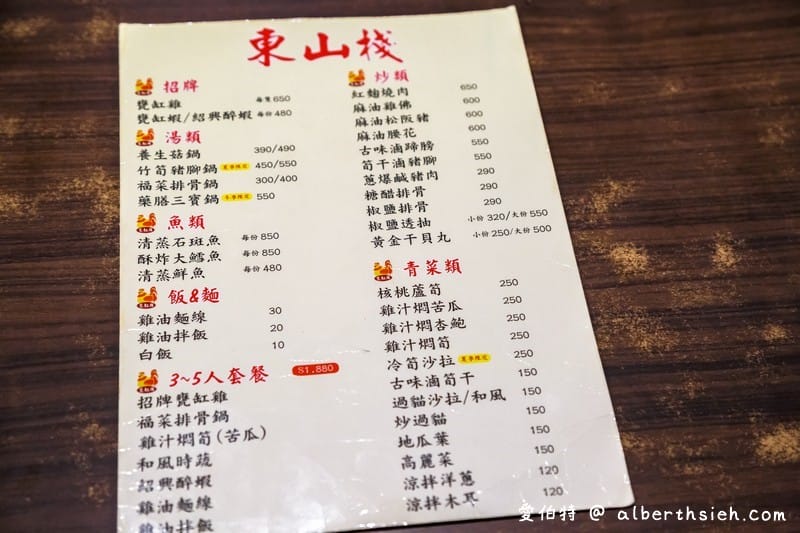 東山棧
招牌
甕缸雞 每隻650
甕缸蝦/紹興醉蝦 每份480
湯類
養生菇鍋 390/490
竹筍豬腳鍋 夏季限定 450/550
福菜排骨鍋 300/400
藥膳三寶鍋 冬季限定 550
魚類
清蒸石斑魚 每份850
酥炸大鱈魚 每份850
清蒸鮮魚 每份480
飯&麵
雞油麵線 30
雞油拌飯 20
白飯 10
3~5人套餐 $1,880
招牌甕缸雞
福菜排骨鍋
雞汁燜筍(苦瓜)
和風時蔬
紹興醉蝦
雞油麵線
雞油拌飯
炒類
紅麴燒肉 650
麻油雞佛 600
麻油松阪豬 600
麻油腰花 600
古味滷蹄膀 550
筍干滷豬腳 550
蔥爆鹹豬肉 290
糖醋排骨 290
椒鹽排骨 290
椒鹽透抽 小份320/大份550
黃金干貝丸 小份250/大份500
青菜類
核桃蘆筍 250
雞汁燜苦瓜 250
雞汁燜杏鮑 250
雞汁燜筍 250
冷筍沙拉 夏季限定 250
古味滷筍干 150
過貓沙拉/和風 150
炒過貓 150
地瓜葉 150
高麗菜 150
涼拌洋蔥 120
涼拌木耳 120
愛伯特 @ alberthsieh.com